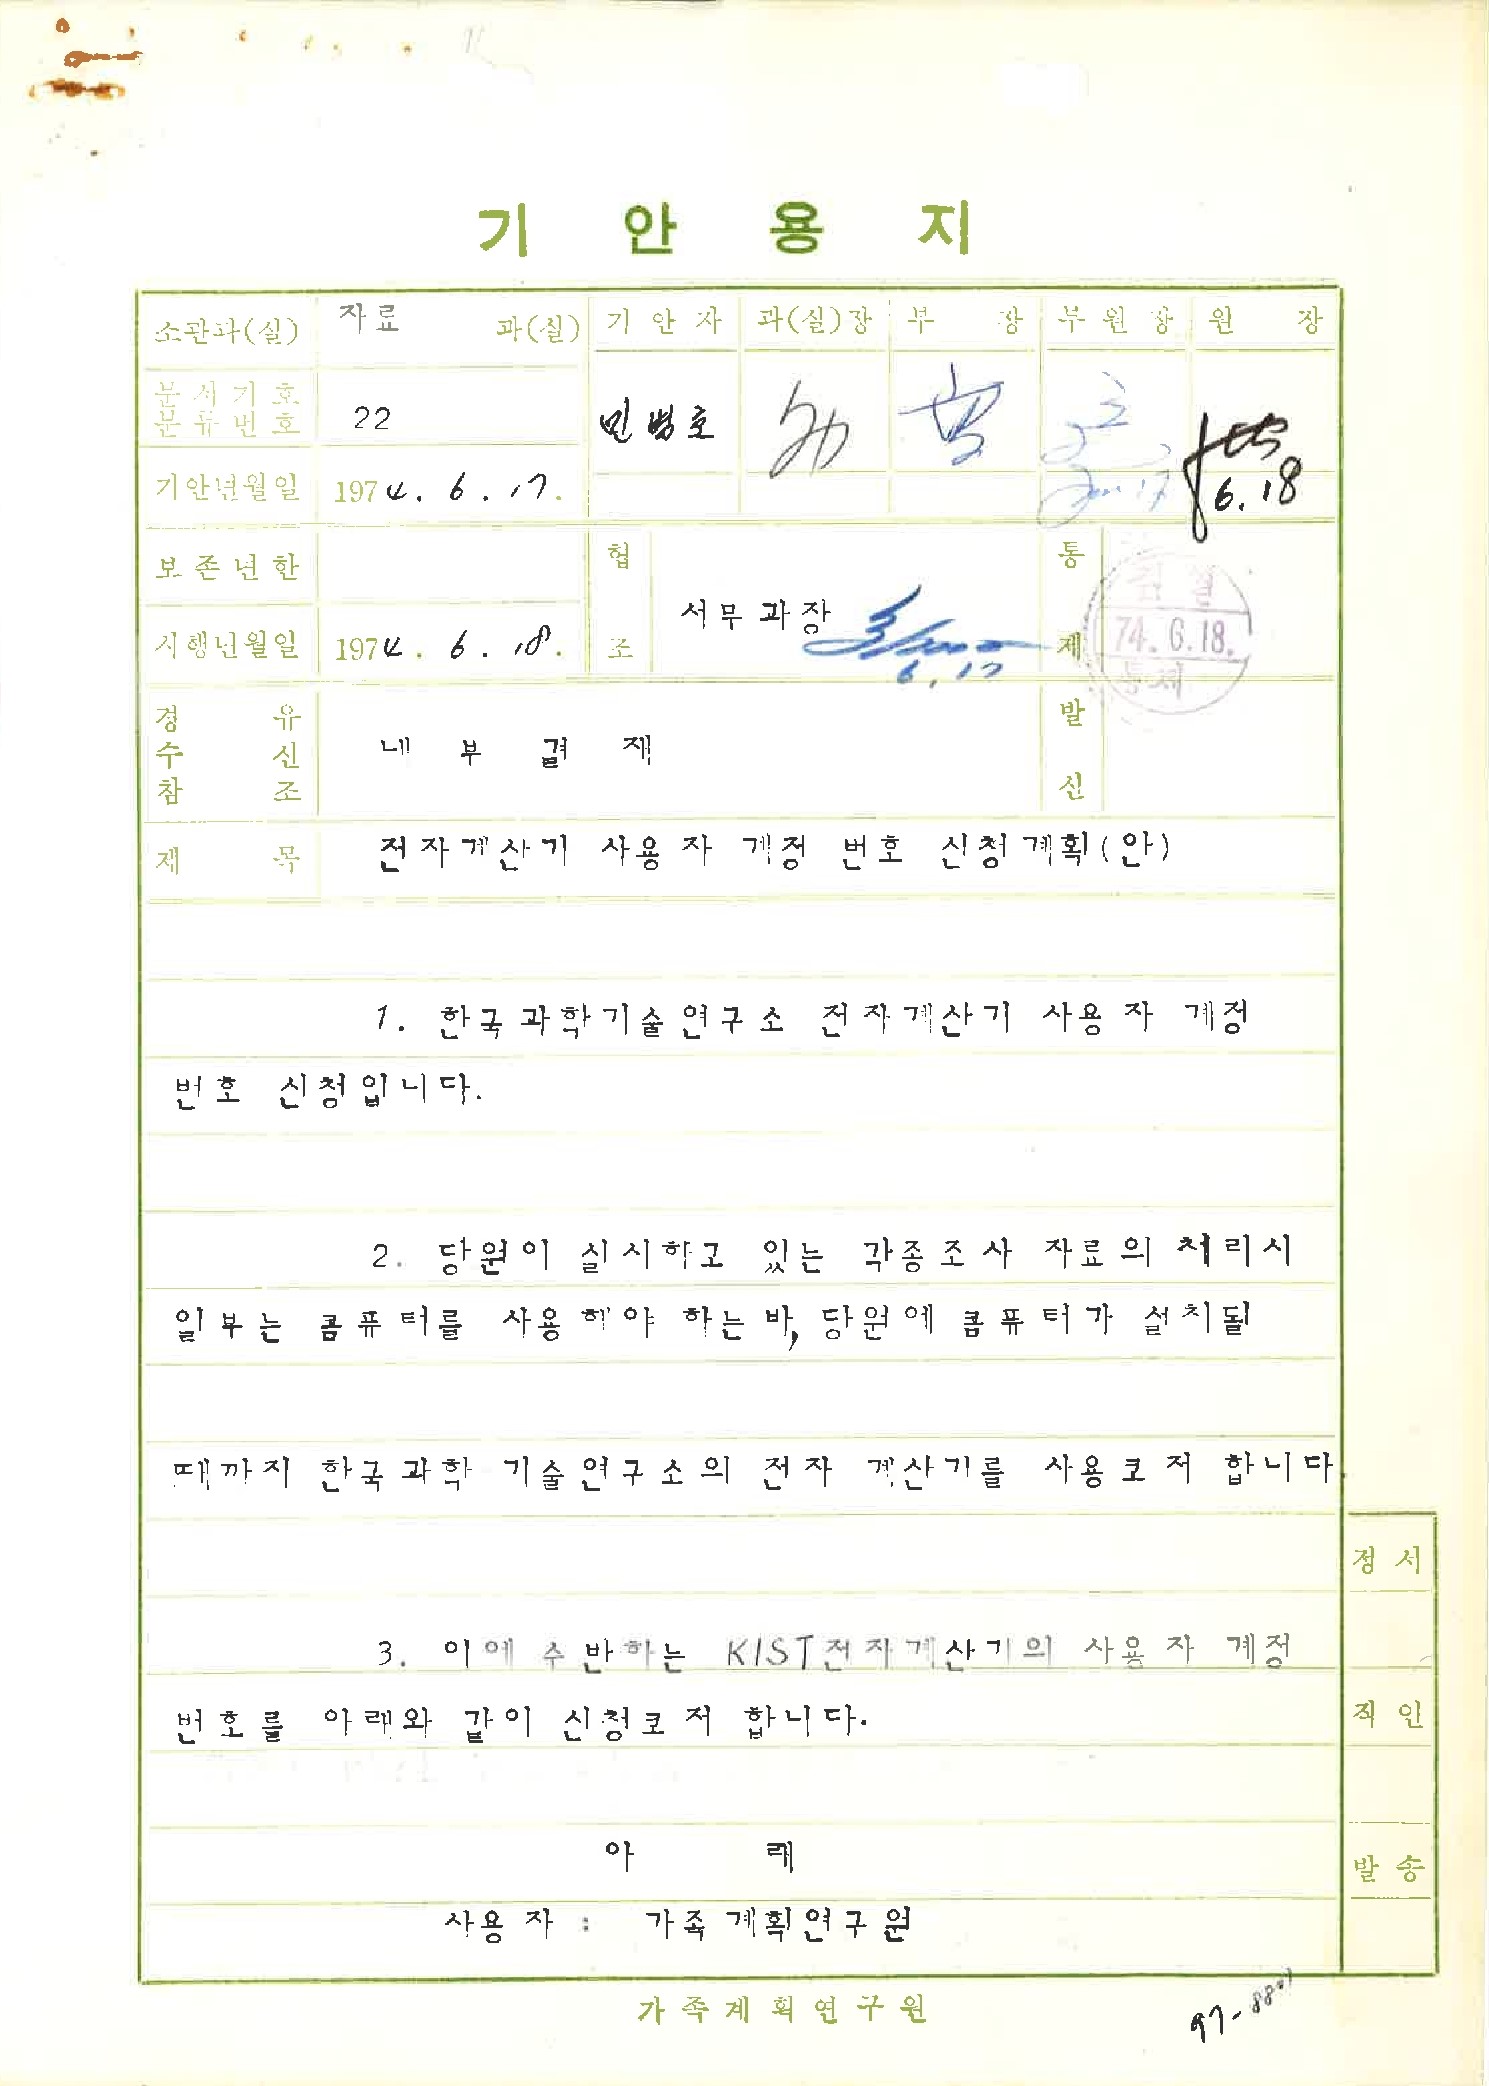 기 안 용 지
소관과(실) 자료 과(실) 기 안 자 과(실)장 부 장 부 원 장 원 장
문서기호
분류번호 22 민병호
기안년월일 1974. 6. 17. 6.18
보존년한 협 조 서무과장 통 제
시행년월일 1974. 6. 18. 6. 17 74. 6. 18.
통제
경 유
수 신 내 부 결 재 발 신
참 조
제 목 전자계산기 사용자 계정 번호 신청계획(안)
1. 한국과학기술연구소 전자계산기 사용자 계정
번호 신청입니다.
2. 당원이 실시하고 있는 각종조사 자료의 처리시
일부는 콤퓨터를 사용해야 하는바, 당원에 콤퓨터가 설치될
때까지 한국과학 기술연구소의 전자 계산기를 사용코저 합니다
3. 이에 수반하는 KIST전자계산기의 사용자 계정
번호를 아래와 같이 신청코저 합니다.
아 래
사용자 : 가족계획연구원
정 서
직 인
발 송
가족계획연구원